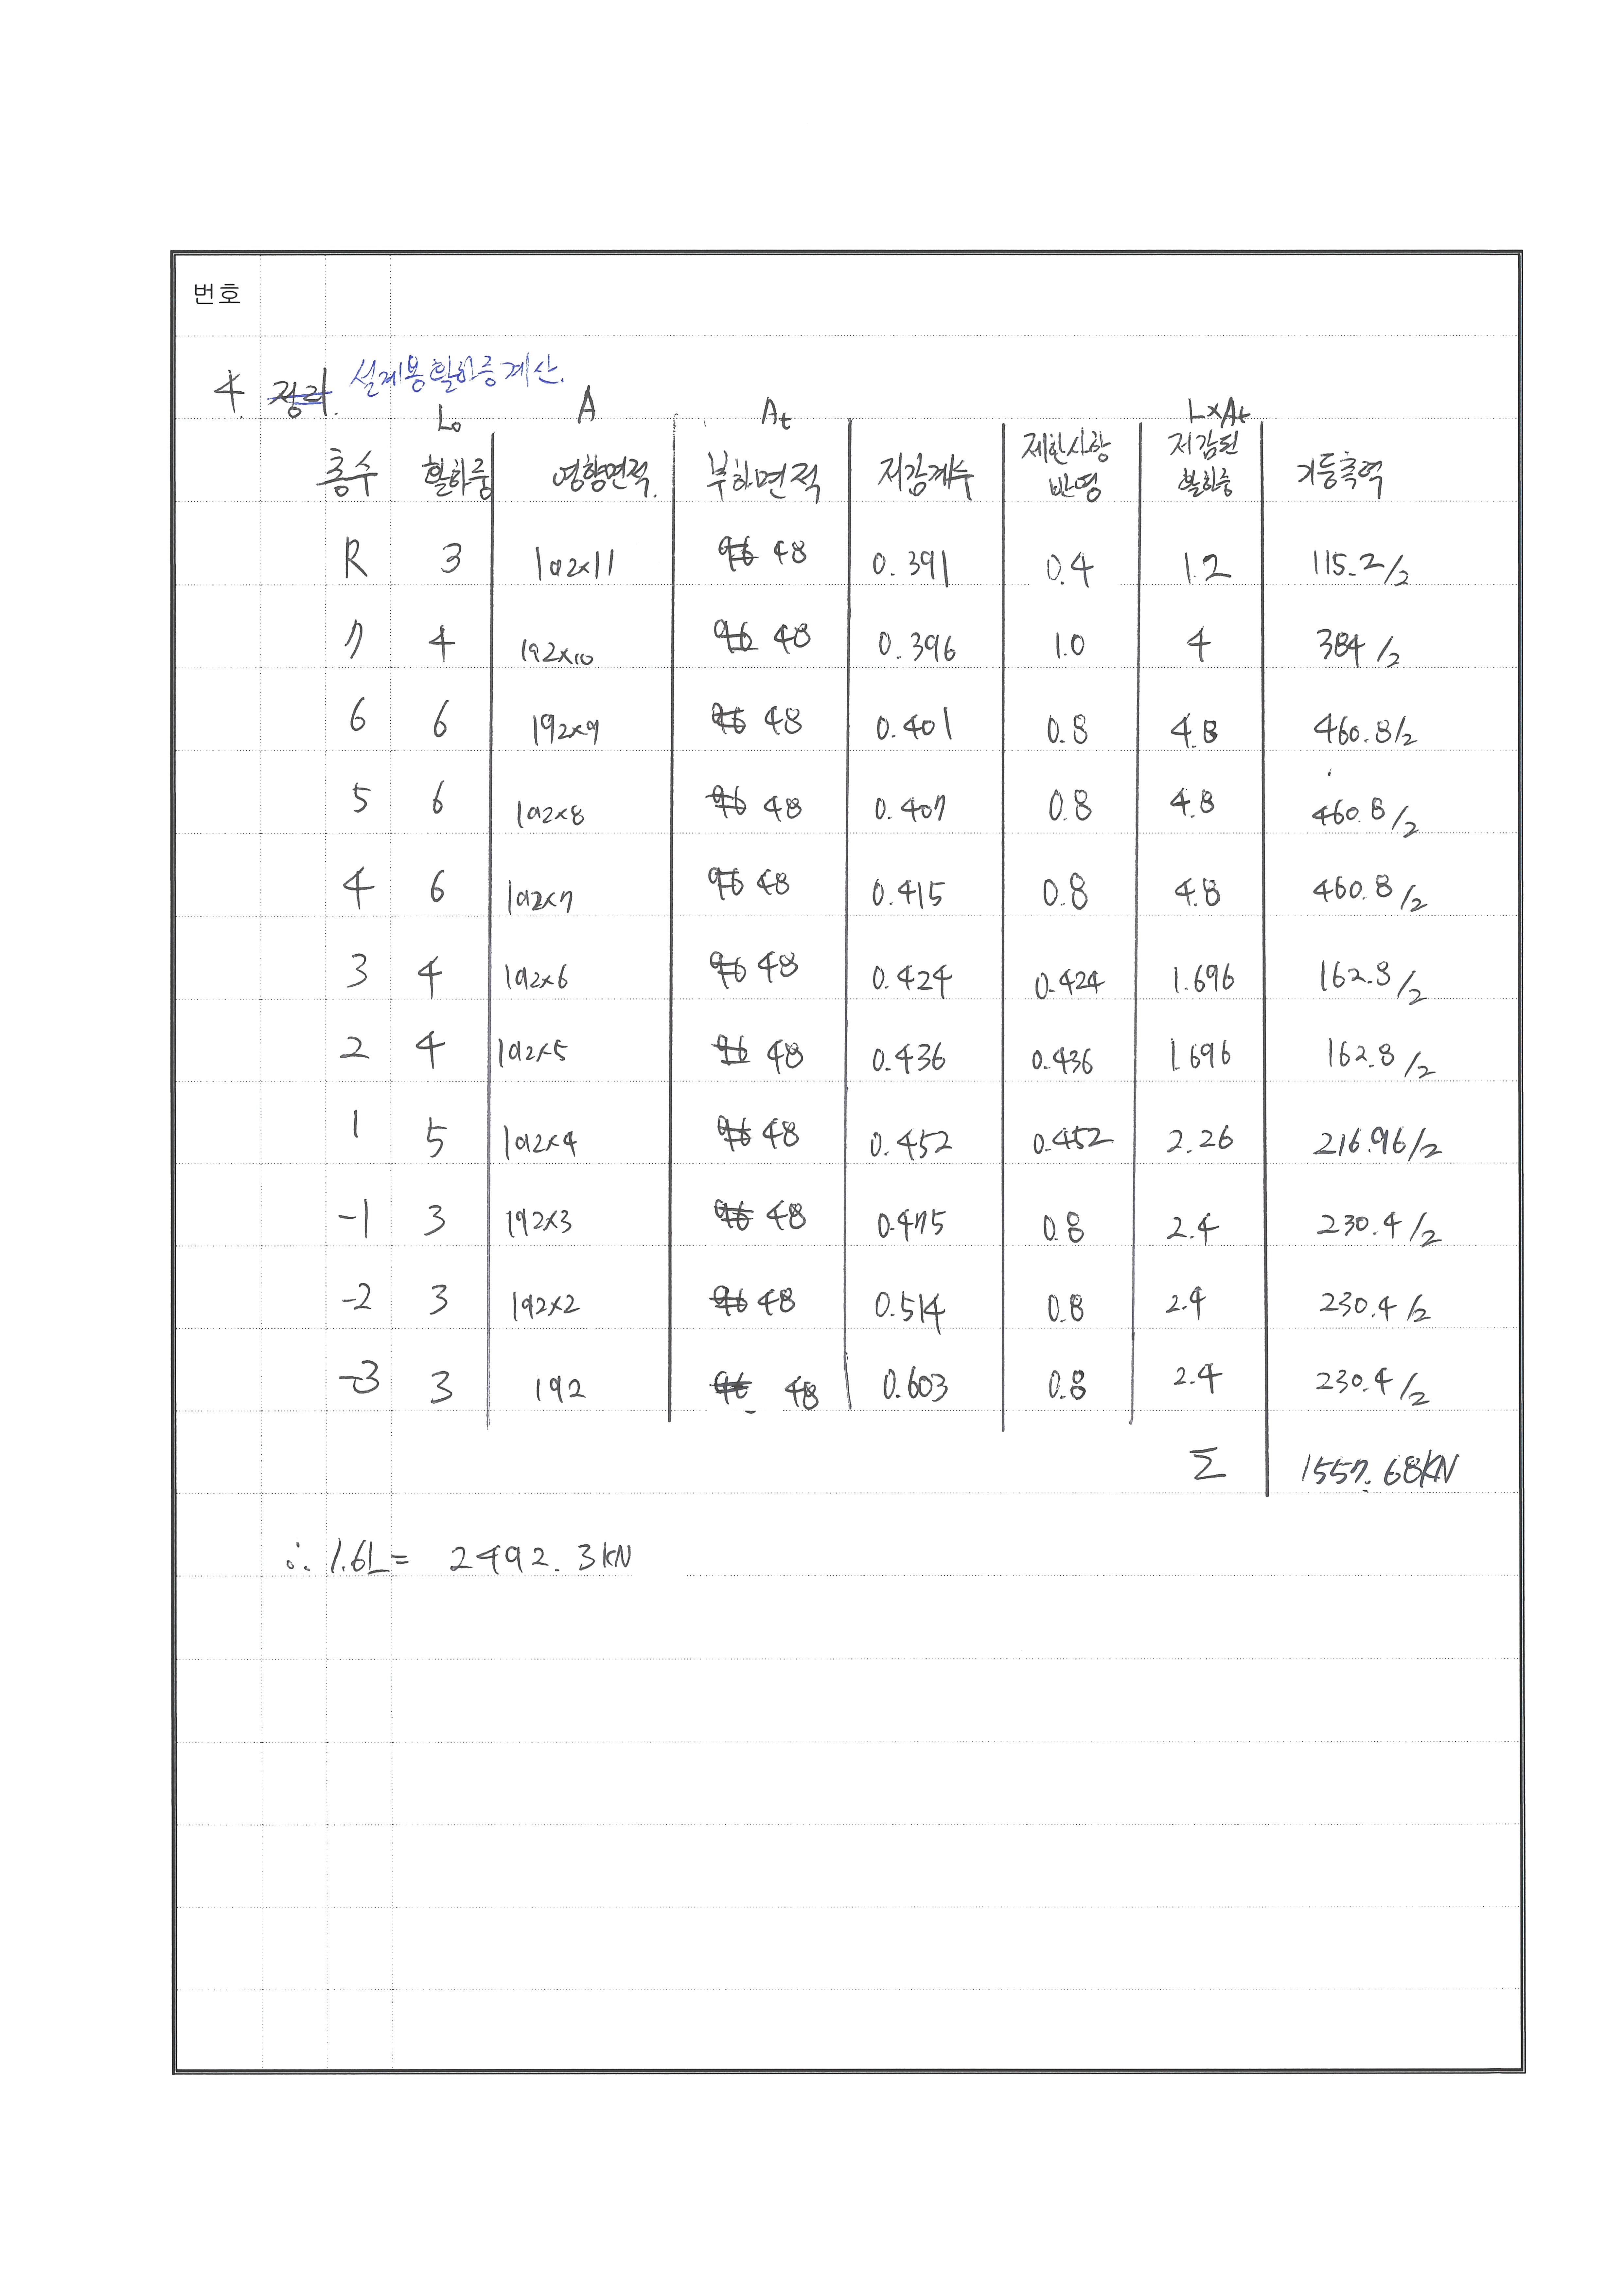 번호
4. 정리. 설계용활하중계산.
L₀ A At L×At
층수 활하중 영향면적. 부하면적 저감계수 제한사항 반영 저감된 활하중 기둥축력
R 3 192×11 96 48 0.391 0.4 1.2 115.2/2
7 4 192×10 96 48 0.396 1.0 4 384/2
6 6 192×9 96 48 0.401 0.8 4.8 460.8/2
5 6 192×8 96 48 0.407 0.8 4.8 460.8/2
4 6 192×7 96 48 0.415 0.8 4.8 460.8/2
3 4 192×6 96 48 0.424 0.424 1.696 162.8/2
2 4 192×5 96 48 0.436 0.436 1.696 162.8/2
1 5 192×4 96 48 0.452 0.452 2.26 216.96/2
-1 3 192×3 96 48 0.475 0.8 2.4 230.4/2
-2 3 192×2 96 48 0.514 0.8 2.4 230.4/2
-3 3 192 96 48 0.603 0.8 2.4 230.4/2
Σ 1557.68KN
∴ 1.6L = 2492.3KN